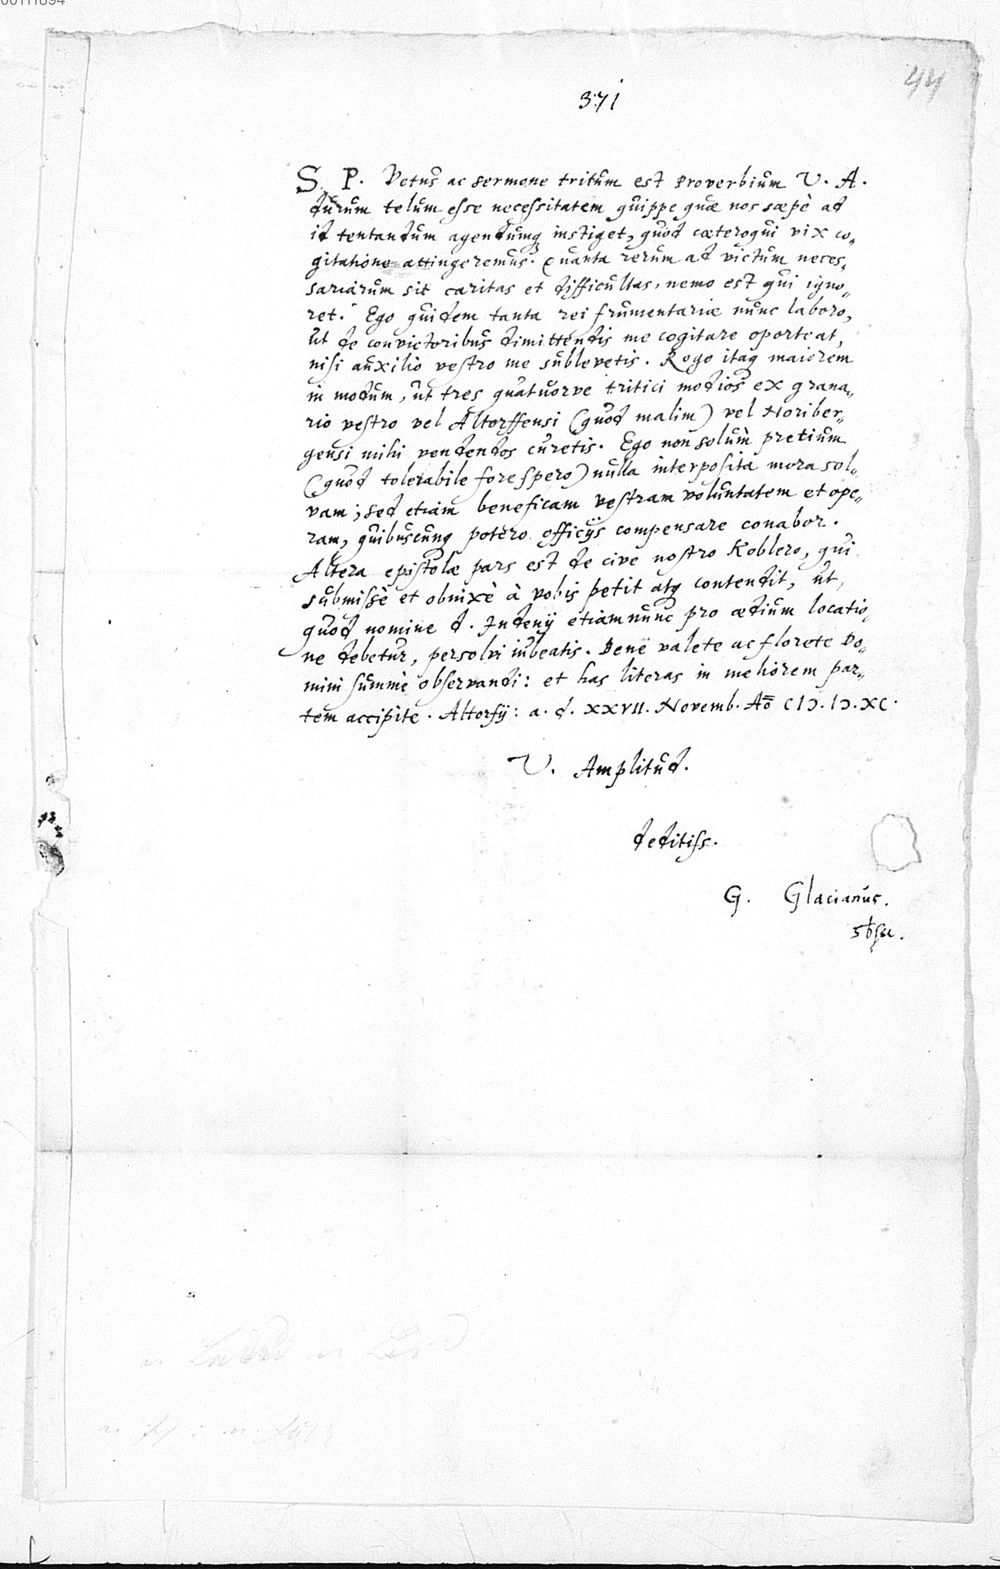 44
371
S. P. Vetus ac sermone tritum est proverbium V. A.
durum telum esse necessitatem quippe quæ nos sæpè ad
id tentandum agendumq instiget, quod cæteroqui vix co„
gitatione attingeremus. Quanta rerum ad victum neces„
sariarum sit caritas et difficultas, nemo est qui igno„
ret. Ego quidem tanta rei frumentariæ nunc laboro,
ut de convictoribus dimittendis me cogitare oporteat,
nisi auxilio vestro me sublevetis. Rogo itaq maiorem
in modum, ut tres quatuorve tritici modios ex grana„
rio vestro vel Altorffensi (quod malim) vel Noriber„
gensi mihi vendendos curetis. Ego non solùm pretium
(quod tolerabile fore spero) nulla interposita mora sol„
vam; sed etiam beneficam vestram voluntatem et ope„
ram, quibuscunq potero officijs compensare conabor.
Altera epistolæ pars est de cive nostro Koblero, qui
submissè et obnixè à vobis petit atq contendit, ut,
quod nomine d. Indenij etiamnunc pro ædium locatio„
ne debetur, persolvi iubeatis. Bene valete ac florete Do„
mini summè observandi: et has literas in meliorem par„
tem accipite. Altorfij: a. d. XXVII. Novemb. Ao CIↃ.IↃ.XC.
V. Amplitud.
deditiss.
G. Glacianus.